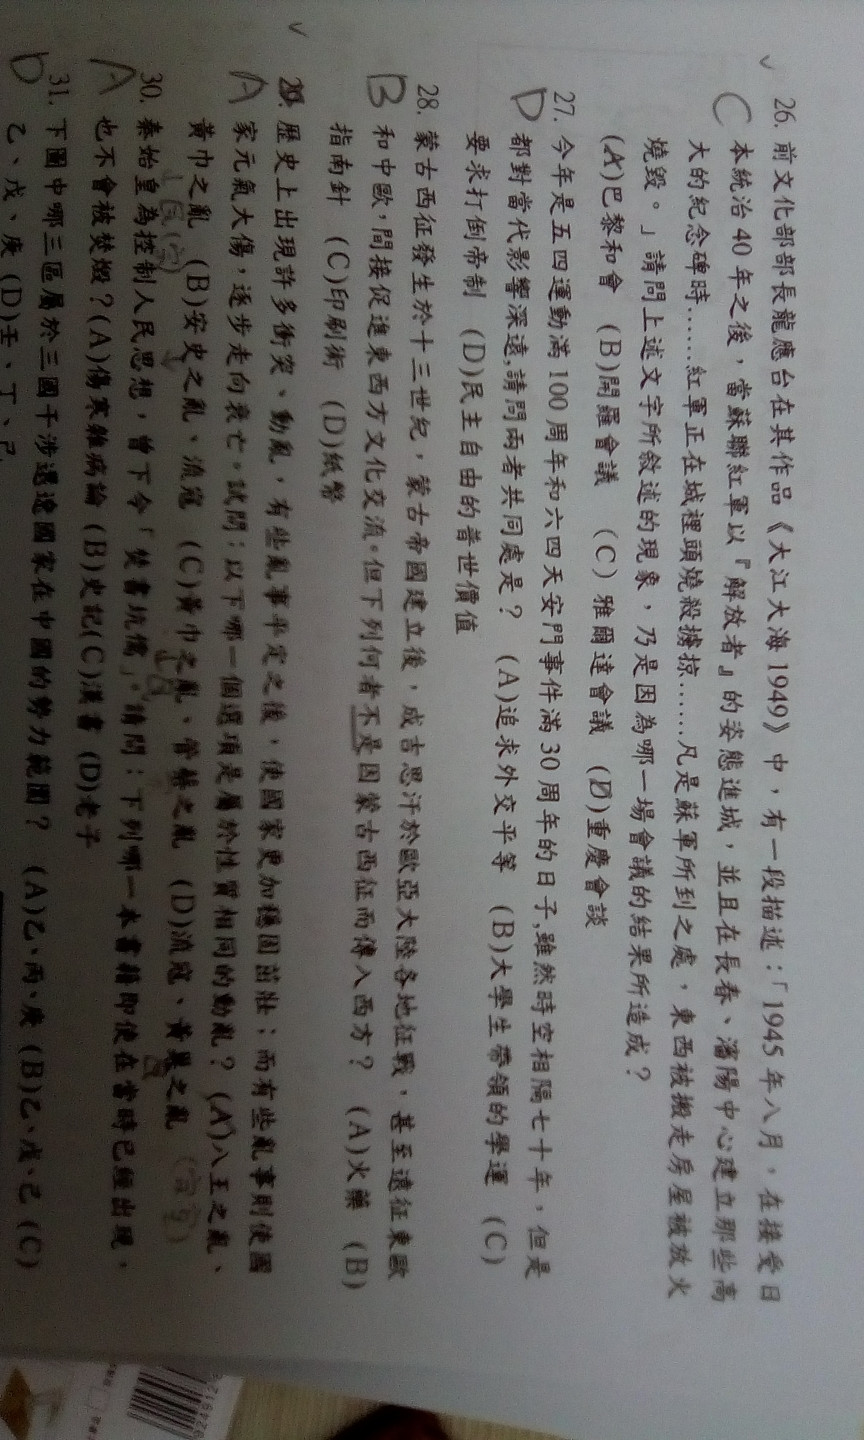 26. 前文化部部長龍應台在其作品《大江大海1949》中，有一段描述：「1945年八月，在接受日
C 本統治40年之後，當蘇聯紅軍以『解放者』的姿態進城，並且在長春、瀋陽中心建立那些高
大的紀念碑時……紅軍正在城裡頭燒殺擄掠……凡是蘇軍所到之處，東西被搬走房屋被放火
燒毀。」請問上述文字所敘述的現象，乃是因為哪一場會議的結果所造成？
(A)巴黎和會 (B)開羅會議 (C)雅爾達會議 (D)重慶會談
27. 今年是五四運動滿100周年和六四天安門事件滿30周年的日子,雖然時空相隔七十年，但是
D 都對當代影響深遠,請問兩者共同處是？ (A)追求外交平等 (B)大學生帶領的學運 (C)
要求打倒帝制 (D)民主自由的普世價值
28. 蒙古西征發生於十三世紀，蒙古帝國建立後，成吉思汗於歐亞大陸各地征戰，甚至遠征東歐
B 和中歐，間接促進東西方文化交流。但下列何者不是因蒙古西征而傳入西方？ (A)火藥 (B)
指南針 (C)印刷術 (D)紙幣
29. 歷史上出現許多衝突、動亂，有些亂事平定之後，使國家更加穩固茁壯；而有些亂事則使國
A 家元氣大傷，逐步走向衰亡。試問：以下哪一個選項是屬於性質相同的動亂？ (A)八王之亂、
黃巾之亂 (B)安史之亂、流寇 (C)黃巾之亂、管蔡之亂 (D)流寇、黃巢之亂
30. 秦始皇為控制人民思想，曾下令「焚書坑儒」。請問：下列哪一本書籍即使在當時已經出現，
A 也不會被焚燬？(A)傷寒雜病論 (B)史記(C)漢書 (D)老子
31. 下圖中哪三區屬於三國干涉還遼國家在中國的勢力範圍？ (A)乙、丙、庚 (B)乙、戊、己 (C)
D 乙、戊、庚 (D)壬、丁、己